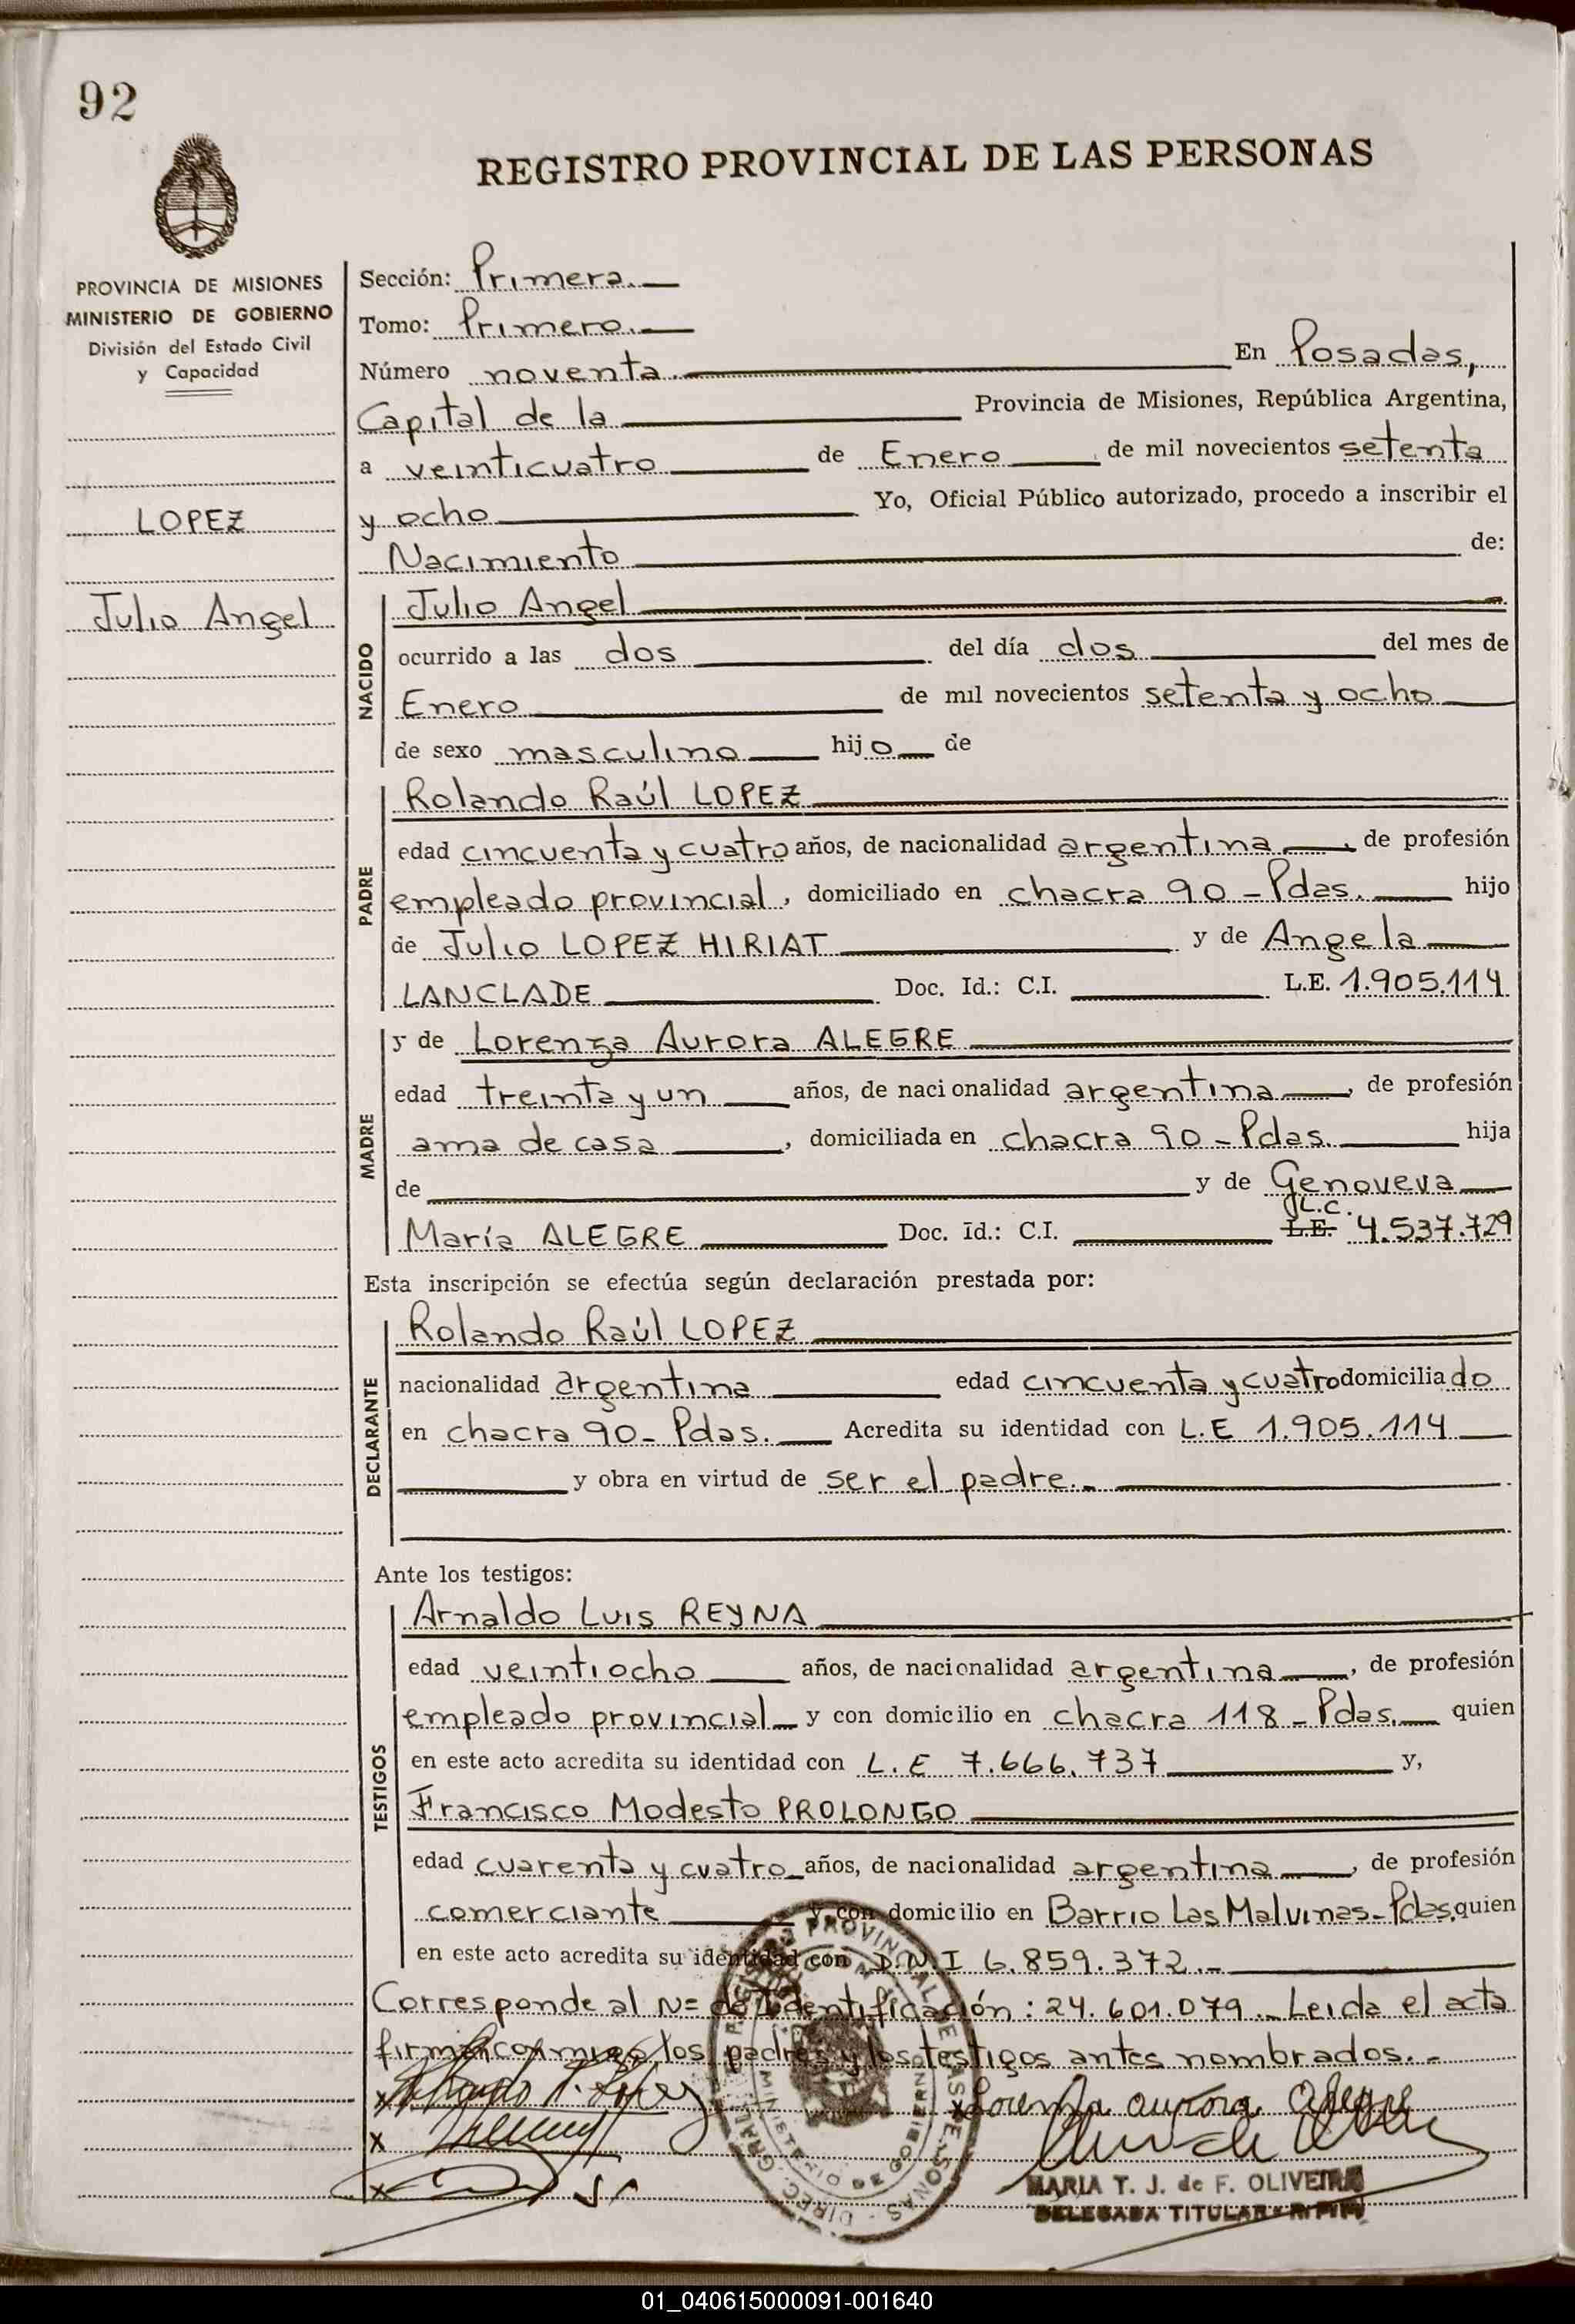 92
REGISTRO PROVINCIAL DE LAS PERSONAS
PROVINCIA DE MISIONES
MINISTERIO DE GOBIERNO
División del Estado Civil
y Capacidad
LOPEZ
Julio Angel
Sección: Primera.
Tomo: Primero.
Número noventa. En Posadas,
Capital de la Provincia de Misiones, República Argentina,
a veinticuatro de Enero de mil novecientos setenta
y ocho Yo, Oficial Público autorizado, procedo a inscribir el
Nacimiento de:
NACIDO
Julio Angel
ocurrido a las dos del día dos del mes de
Enero de mil novecientos setenta y ocho
de sexo masculino hijo de
PADRE
Rolando Raúl LOPEZ
edad cincuenta y cuatro años, de nacionalidad argentina, de profesión
empleado provincial, domiciliado en chacra 90 - Pdas. hijo
de Julio LOPEZ HIRIAT y de Angela
LANCLADE Doc. Id.: C.I. L.E. 1.905.114
MADRE
y de Lorenza Aurora ALEGRE
edad treinta y un años, de nacionalidad argentina, de profesión
ama de casa, domiciliada en chacra 90 - Pdas. hija
de y de Genoveva
L.C.
María ALEGRE Doc. Id.: C.I. L.E. 4.537.729
Esta inscripción se efectúa según declaración prestada por:
DECLARANTE
Rolando Raúl LOPEZ
nacionalidad argentina edad cincuenta y cuatro domiciliado
en chacra 90 - Pdas. Acredita su identidad con L.E 1.905.114
y obra en virtud de ser el padre.-
Ante los testigos:
TESTIGOS
Arnaldo Luis REYNA
edad veintiocho años, de nacionalidad argentina, de profesión
empleado provincial y con domicilio en chacra 118 - Pdas. quien
en este acto acredita su identidad con L.E 7.666.737 y,
Francisco Modesto PROLONGO
edad cuarenta y cuatro años, de nacionalidad argentina, de profesión
comerciante y con domicilio en Barrio Las Malvinas - Pdas. quien
en este acto acredita su identidad con D.N.I 6.859.372.-
Corresponde al Nº de Identificación: 24.601.079.- Leida el acta
firman conmigo los padres y los testigos antes nombrados.-
x Rolando R. Lopez
x Lorenza aurora Alegre
x
x
MARIA T. J. de F. OLIVEIRA
DELEGADA TITULAR
01_040615000091-001640